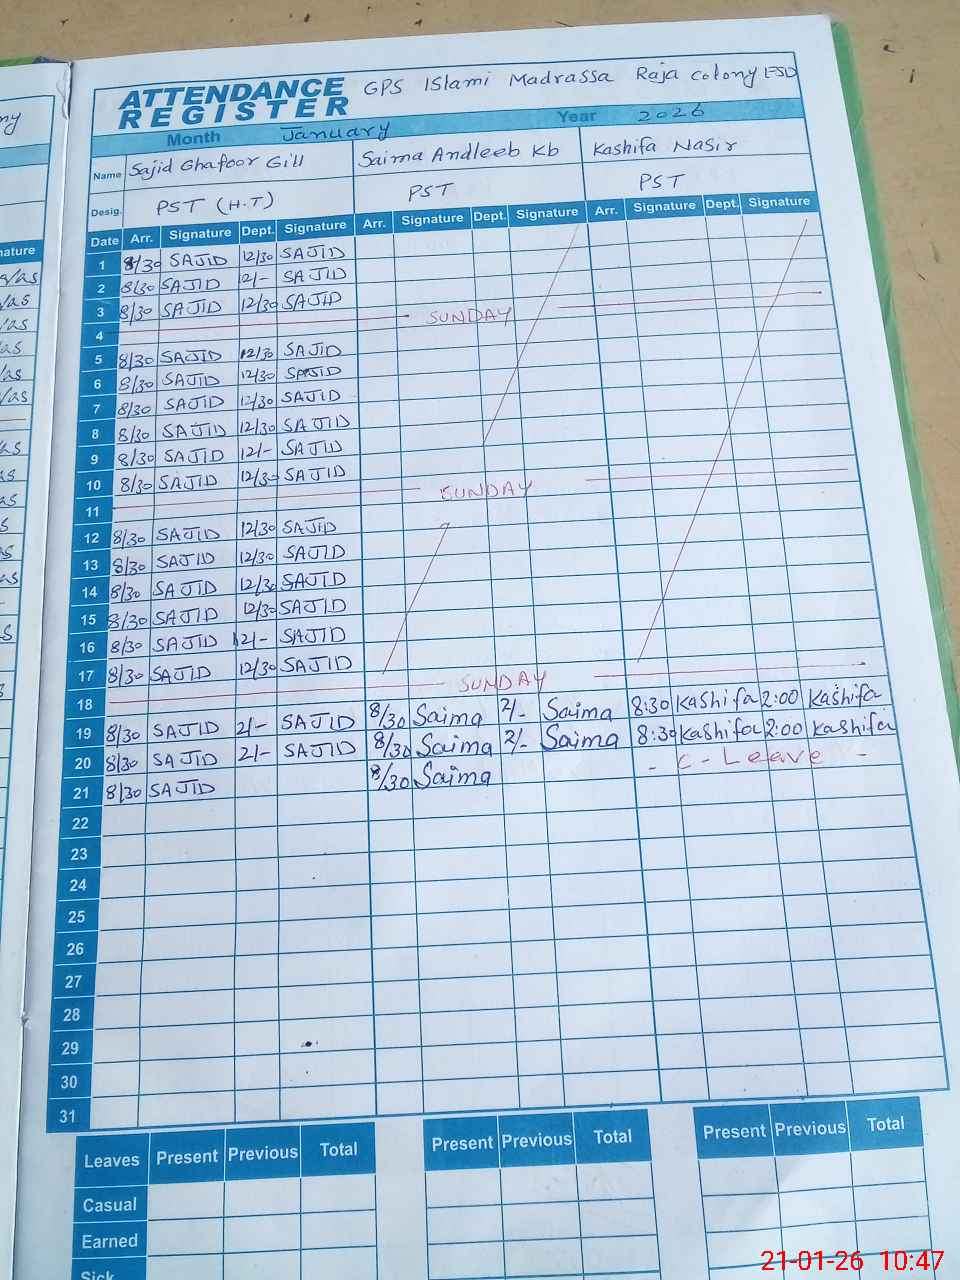 ATTENDANCE REGISTER GPS ISlami Madrassa Raja colony FSD
Month January Year 2026
Name Sajid Ghafoor Gill Saima Andleeb Kb Kashifa Nasir
Desig. PST (H.T) PST PST
Date Arr. Signature Dept. Signature Arr. Signature Dept. Signature Arr. Signature Dept. Signature
1 8/30 SAJID 12/30 SAJID
2 8/30 SAJID 12/- SAJID
3 8/30 SAJID 12/30 SAJID
4 SUNDAY
5 8/30 SAJID 12/30 SAJID
6 8/30 SAJID 12/30 SAJID
7 8/30 SAJID 12/30 SAJID
8 8/30 SAJID 12/30 SAJID
9 8/30 SAJID 12/- SAJID
10 8/30 SAJID 12/30 SAJID
11 SUNDAY
12 8/30 SAJID 12/30 SAJID
13 8/30 SAJID 12/30 SAJID
14 8/30 SAJID 12/30 SAJID
15 8/30 SAJID 12/30 SAJID
16 8/30 SAJID 12/- SAJID
17 8/30 SAJID 12/30 SAJID
18 SUNDAY
19 8/30 SAJID 2/- SAJID 8/30 Saima 2/- Saima 8:30 Kashifa 2:00 Kashifa
20 8/30 SAJID 2/- SAJID 8/30 Saima 2/- Saima 8:30 Kashifa 2:00 Kashifa
21 8/30 SAJID 8/30 Saima - C - Leave -
22
23
24
25
26
27
28
29
30
31
Leaves Present Previous Total Present Previous Total Present Previous Total
Casual
Earned
Sick
21-01-26 10:47